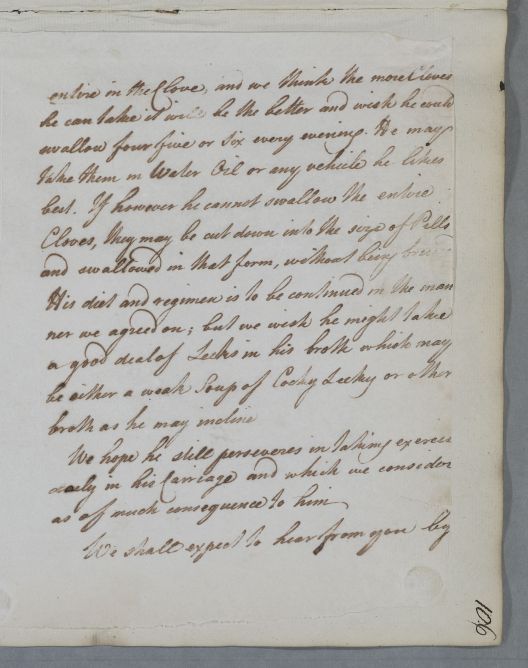 entire in the Clove, and we think the more Cloves
he can take it will be the better and wish he could
swallow four five or six every evening. He may
take them in Water Oil or any vehicle he likes
best. If however he cannot swallow the entire
Cloves, they may be cut down into the size of Pills
and swallowed in that form, without being
His diet and regimen is to be continued in the man
ner we agreed on; but we wish he might take
a good deal of Leeks in his broth which may
be either a weak Soup of Cocky Leeky or other
broth as he may incline
We hope he still perseveres in taking exercise
daily in his Carriage and which we consider
as of much consequence to him
We shall expect to hear from you by
106